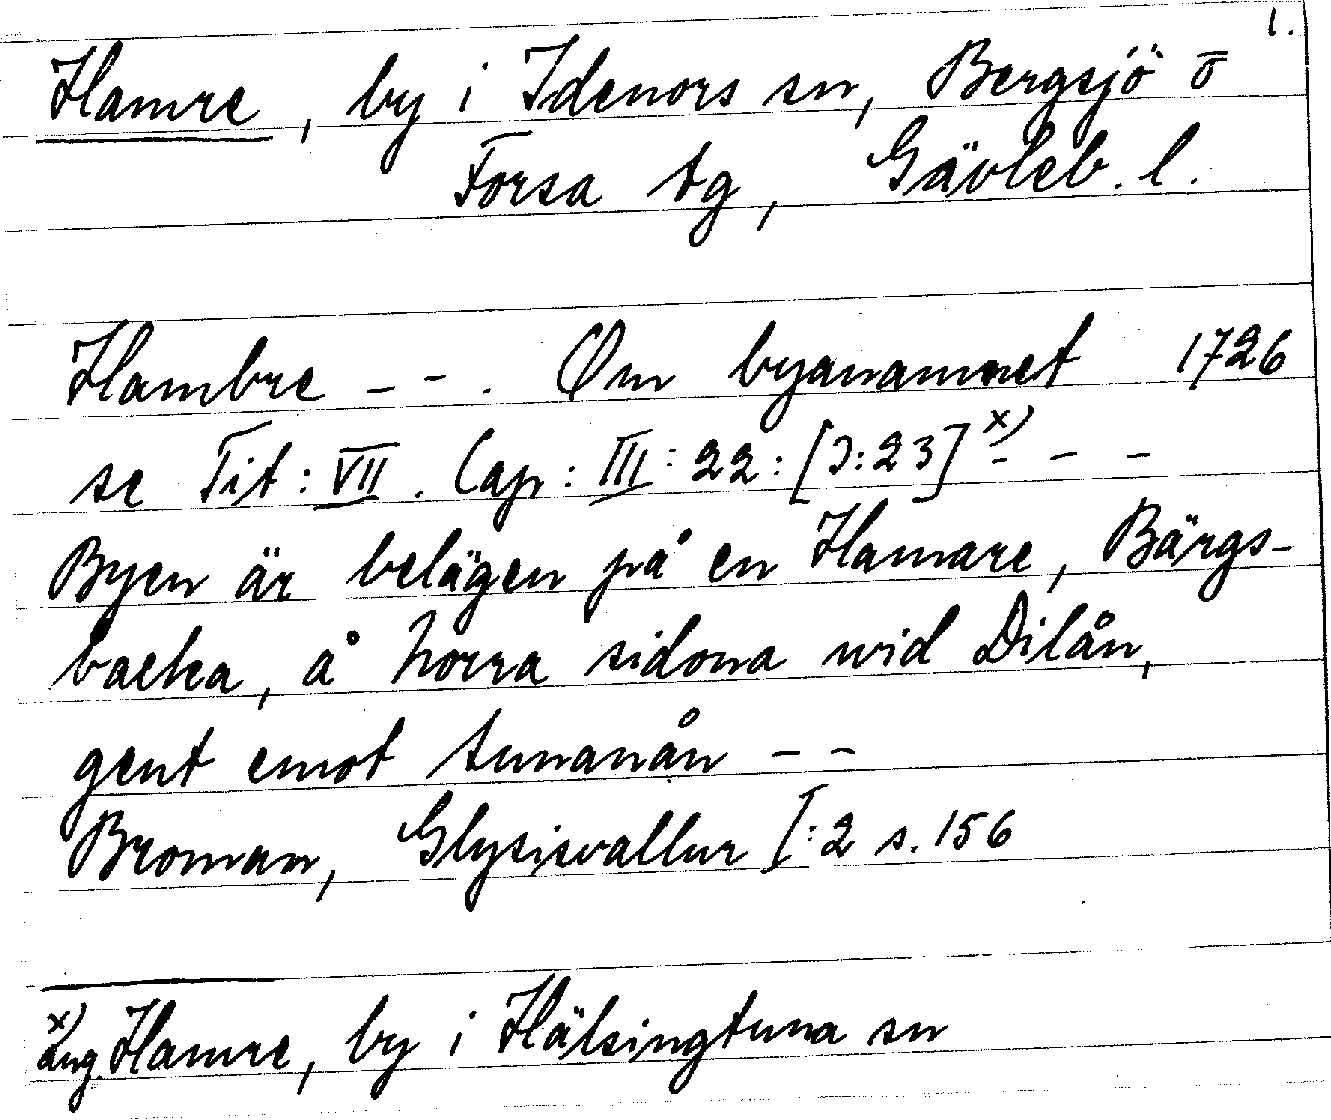 1.
Hamre, by i Idenors sn, Bergsjö o
Forsa tg, Gävleb. l.
Hambre - - . Om byanamnet 1726
se Tit: VII. Cap: III: 22: [J:23] x) - - -
Byen är belägen på en Hamare, Bärgs-
backa, å Norra sidona wid Dilån,
gent emot tunanån - -
Broman, Glysisvallur I:2 s. 156
x) ang. Hamre, by i Hälsingtuna sn